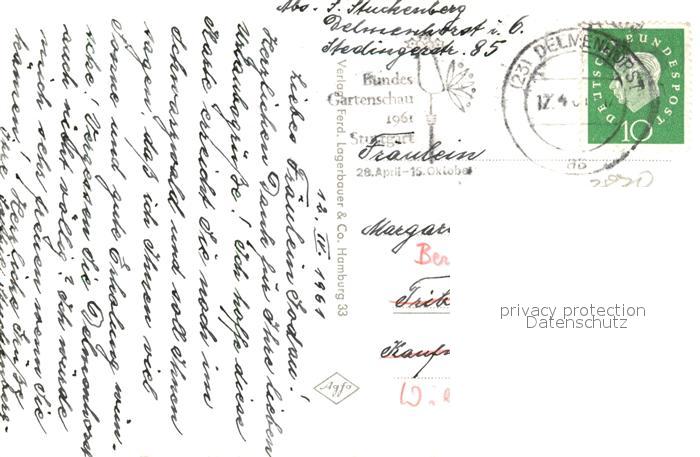 Abs. F. Stuckenberg
Delmenhorst i. O.
Stedingerstr. 85
(23) DELMENHORST
17.4.61
DEUTSCHE BUNDESPOST
10
Bundes
Gartenschau
1961
Stuttgart
28. April - 15. Oktober
Fräulein
Margar
Ber
Trib
Kauf
Verlag Ferd. Lagerbauer & Co. Hamburg 33
Agfa
privacy protection
Datenschutz
1961
Liebes Fräulein
Herzlichen Dank für Ihre lieben
Urlaubsgrüße! Ich hoffe diese
Karte erreicht Sie noch im
Schwarzwald und soll Ihnen
sagen, daß ich Ihnen viel
und gute Erholung wün-
sche! Vergessen Sie Delmenhorst
auch nicht völlig! Ich würde
mich sehr freuen wenn Sie
kämen! Herzliche Grüße
Ihre